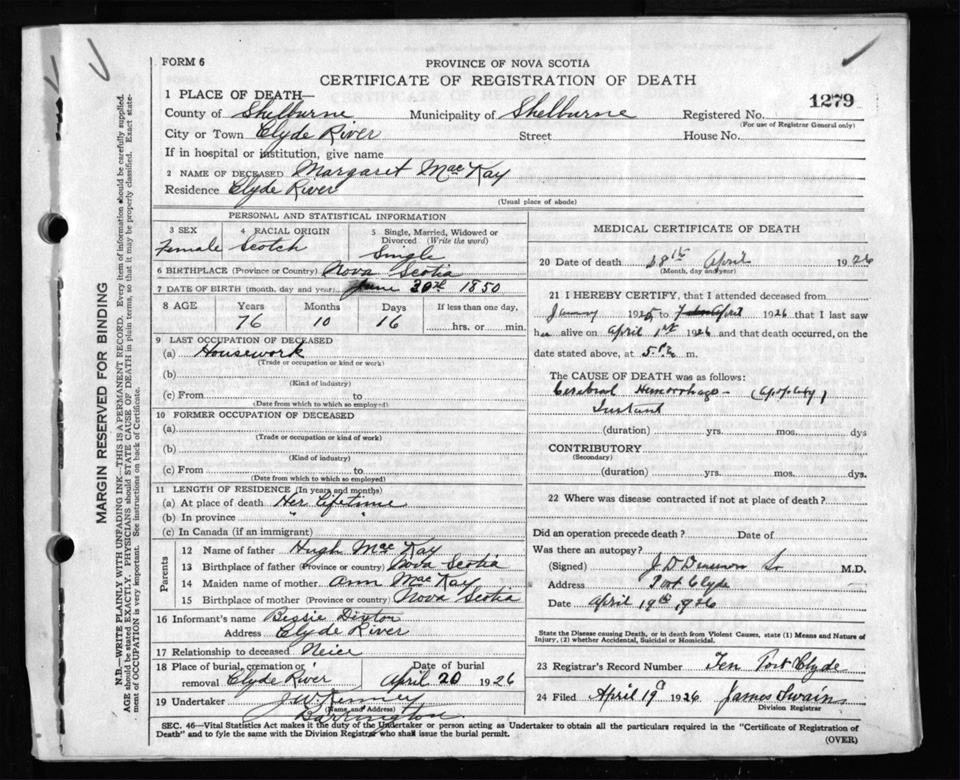 FORM 6
PROVINCE OF NOVA SCOTIA
CERTIFICATE OF REGISTRATION OF DEATH
1279
1 PLACE OF DEATH—
County of Shelburne Municipality of Shelburne Registered No.
(For use of Registrar General only)
City or Town Clyde River Street House No.
If in hospital or institution, give name
2 NAME OF DECEASED Margaret MacKay
Residence Clyde River
(Usual place of abode)
PERSONAL AND STATISTICAL INFORMATION
3 SEX 4 RACIAL ORIGIN 5 Single, Married, Widowed or Divorced (Write the word)
Female Scotch Single
6 BIRTHPLACE (Province or Country) Nova Scotia
7 DATE OF BIRTH (month, day and year) June 20th 1850
8 AGE Years Months Days If less than one day,
76 10 16 hrs. or min.
9 LAST OCCUPATION OF DECEASED
(a) Housework
(Trade or occupation or kind or work)
(b)
(Kind of industry)
(c) From to
(Date from which to which so employed)
10 FORMER OCCUPATION OF DECEASED
(a)
(Trade or occupation or kind of work)
(b)
(Kind of industry)
(c) From to
(Date from which to which so employed)
11 LENGTH OF RESIDENCE (In years and months)
(a) At place of death Her lifetime
(b) In province " "
(c) In Canada (if an immigrant)
Parents
12 Name of father Hugh MacKay
13 Birthplace of father (Province or country) Nova Scotia
14 Maiden name of mother Ann MacKay
15 Birthplace of mother (Province or country) Nova Scotia
16 Informant's name Bessie
Address Clyde River
17 Relationship to deceased Neice
18 Place of burial, cremation or removal Clyde River Date of burial April 20 1926
19 Undertaker J.W. Kenney
(Name and Address)
Barrington
MEDICAL CERTIFICATE OF DEATH
20 Date of death 18th April 1926
(Month, day and year)
21 I HEREBY CERTIFY, that I attended deceased from
January 1926 to April 1926 that I last saw
her alive on April 1st 1926 and that death occurred, on the
date stated above, at m.
The CAUSE OF DEATH was as follows:
Cerebral Hemorrhage (apoplexy)
Instant
(duration) yrs. mos. dys
CONTRIBUTORY
(Secondary)
(duration) yrs. mos. dys.
22 Where was disease contracted if not at place of death?
Did an operation precede death? Date of
Was there an autopsy?
(Signed) J D M.D.
Address Port Clyde
Date April 19th 1926
State the Disease causing Death, or in death from Violent Causes, state (1) Means and Nature of
Injury, (2) whether Accidental, Suicidal or Homicidal.
23 Registrar's Record Number Ten Port Clyde
24 Filed April 19 1926 James Swain
Division Registrar
SEC. 46—Vital Statistics Act makes it the duty of the Undertaker or person acting as Undertaker to obtain all the particulars required in the "Certificate of Registration of
Death" and to fyle the same with the Division Registrar who shall issue the burial permit.
(OVER)
MARGIN RESERVED FOR BINDING
N.B.—WRITE PLAINLY WITH UNFADING INK—THIS IS A PERMANENT RECORD. Every item of information should be carefully supplied.
AGE should be stated EXACTLY. PHYSICIANS should STATE CAUSE OF DEATH in plain terms, so that it may be properly classified. Exact state-
ment of OCCUPATION is very important. See instructions on back of Certificate.